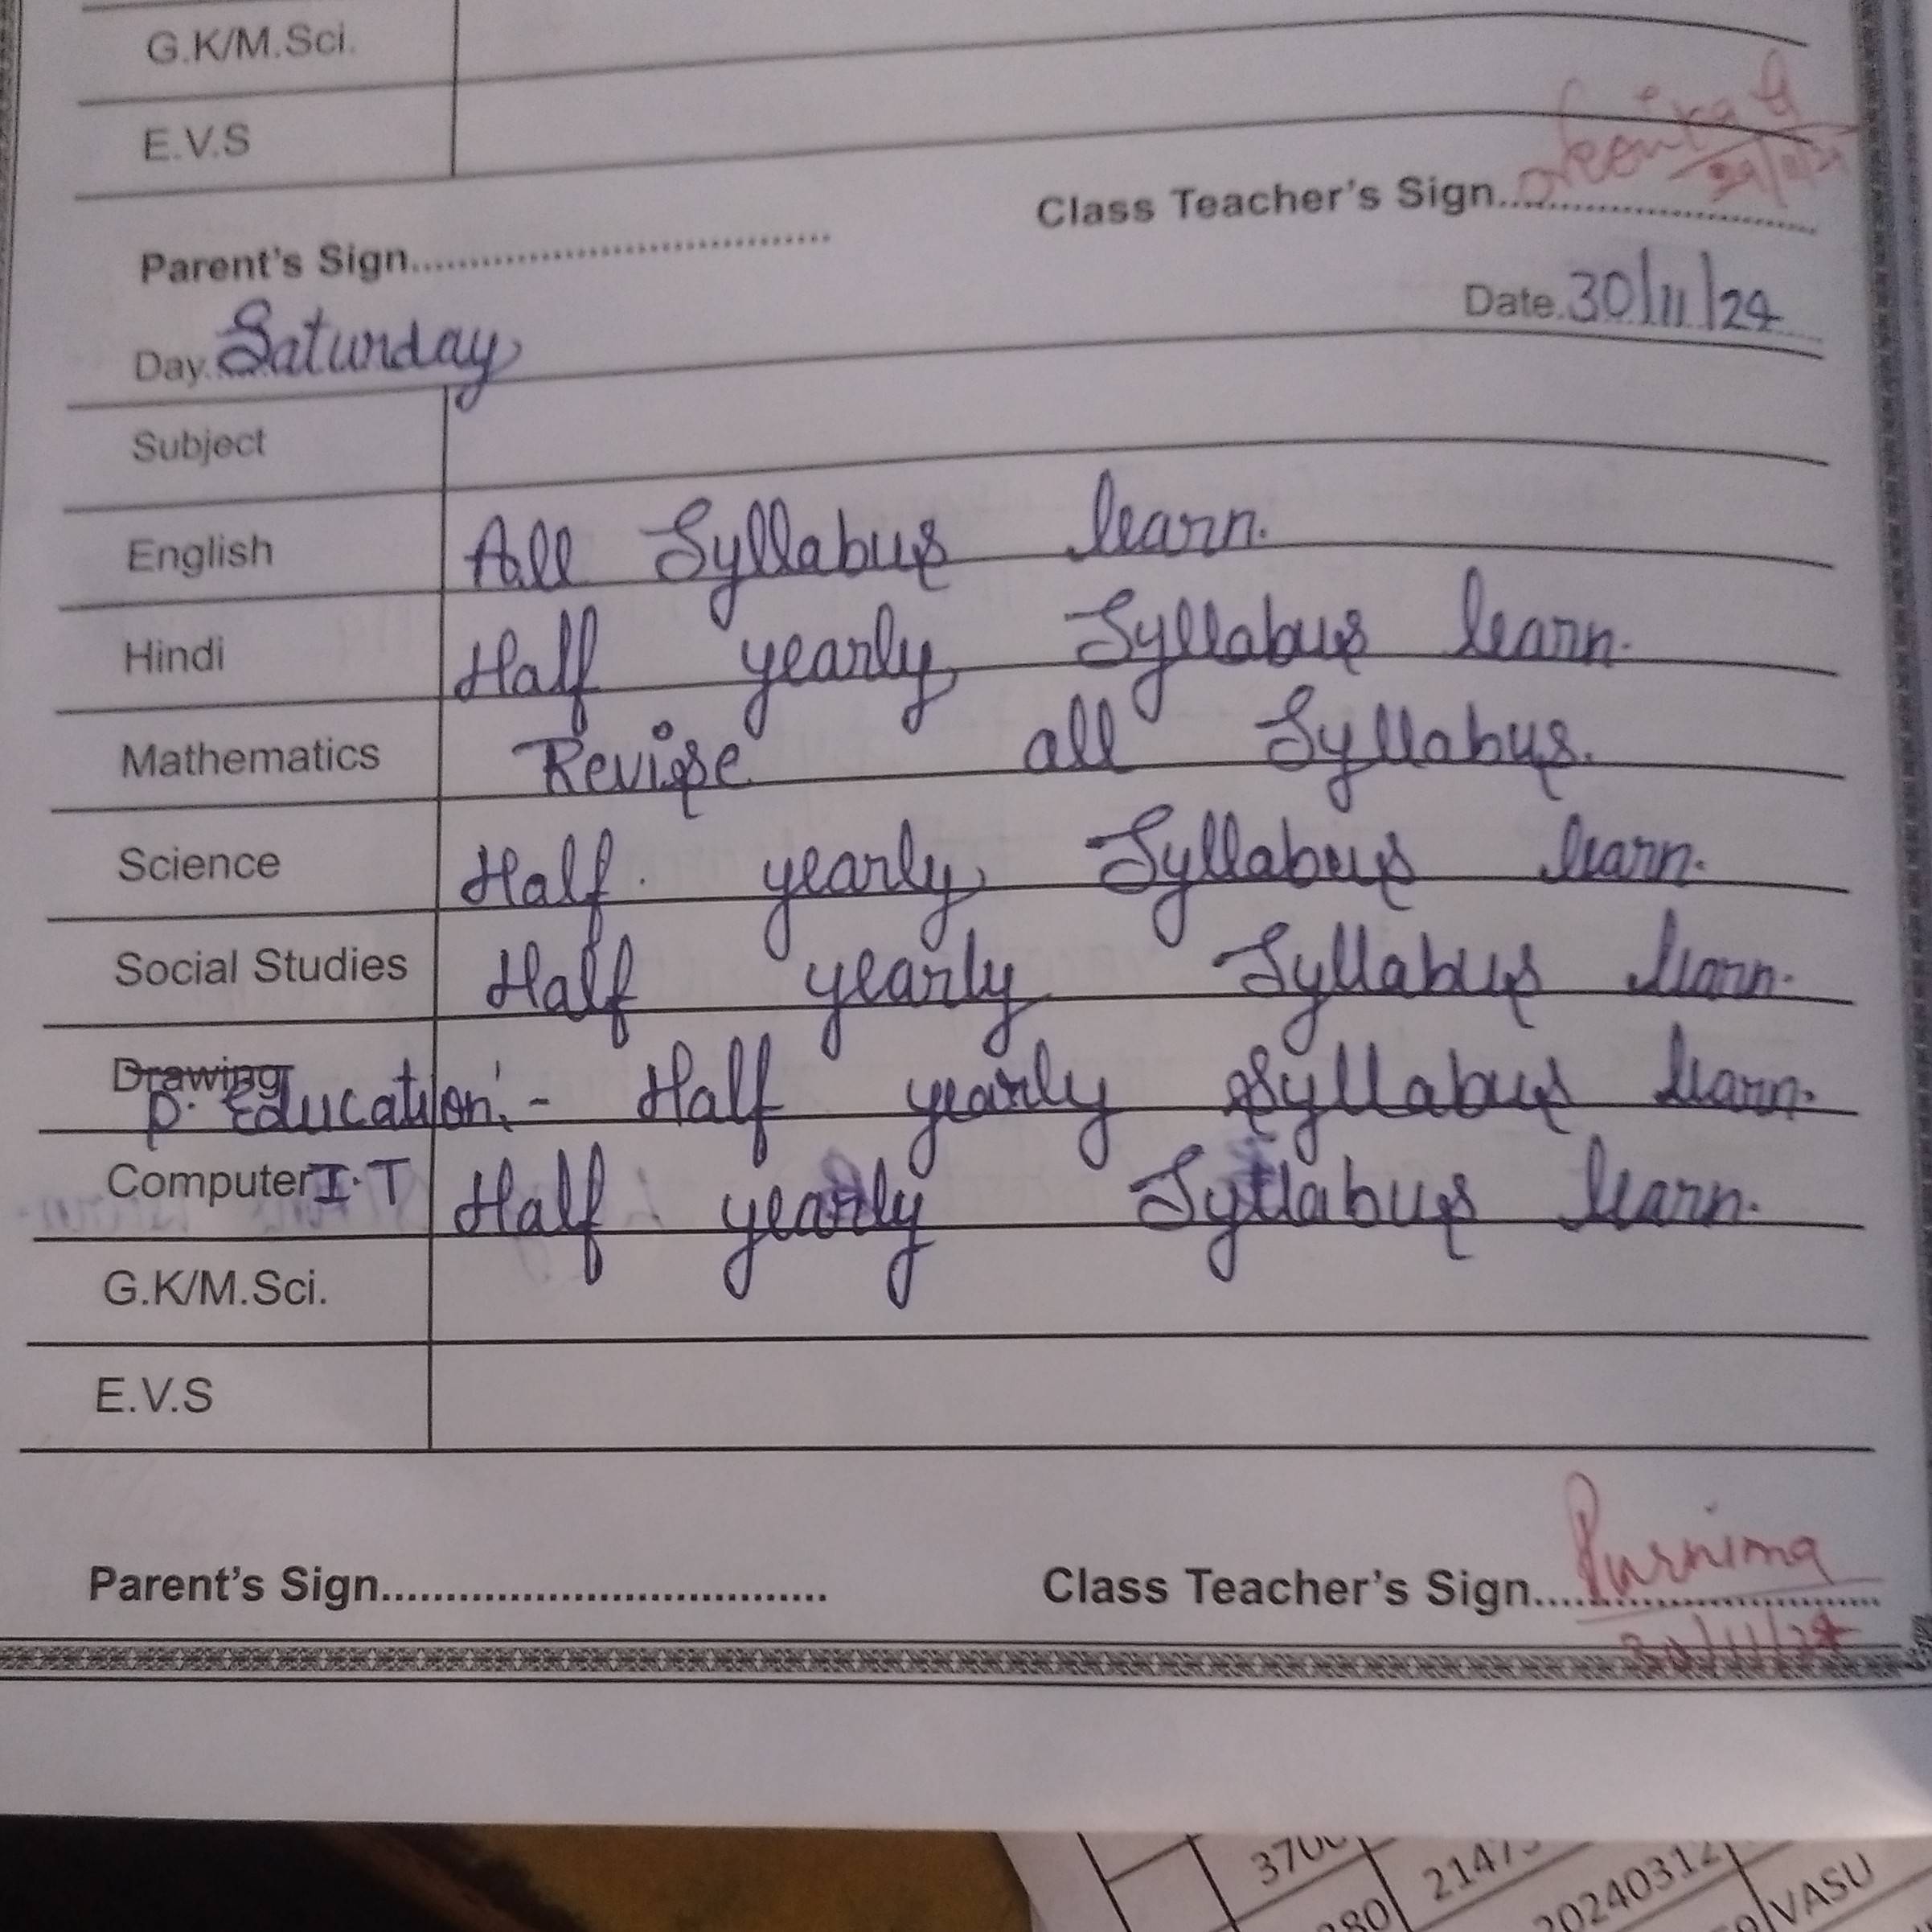 G.K/M.Sci.
E.V.S
Class Teacher's Sign....................................
Parent's Sign....................................
Date.30/11/24
Day.Saturday
Subject
English All Syllabus learn.
Hindi Half yearly Syllabus learn.
Mathematics Revise all Syllabus.
Science Half yearly Syllabus learn.
Social Studies Half yearly Syllabus learn.
Drawing
P. Education:- Half yearly Syllabus learn.
Computer I.T Half yearly Syllabus learn.
G.K/M.Sci.
E.V.S
Parent's Sign....................................
Class Teacher's Sign.... Purnima
30/11/24
20240312
VASU